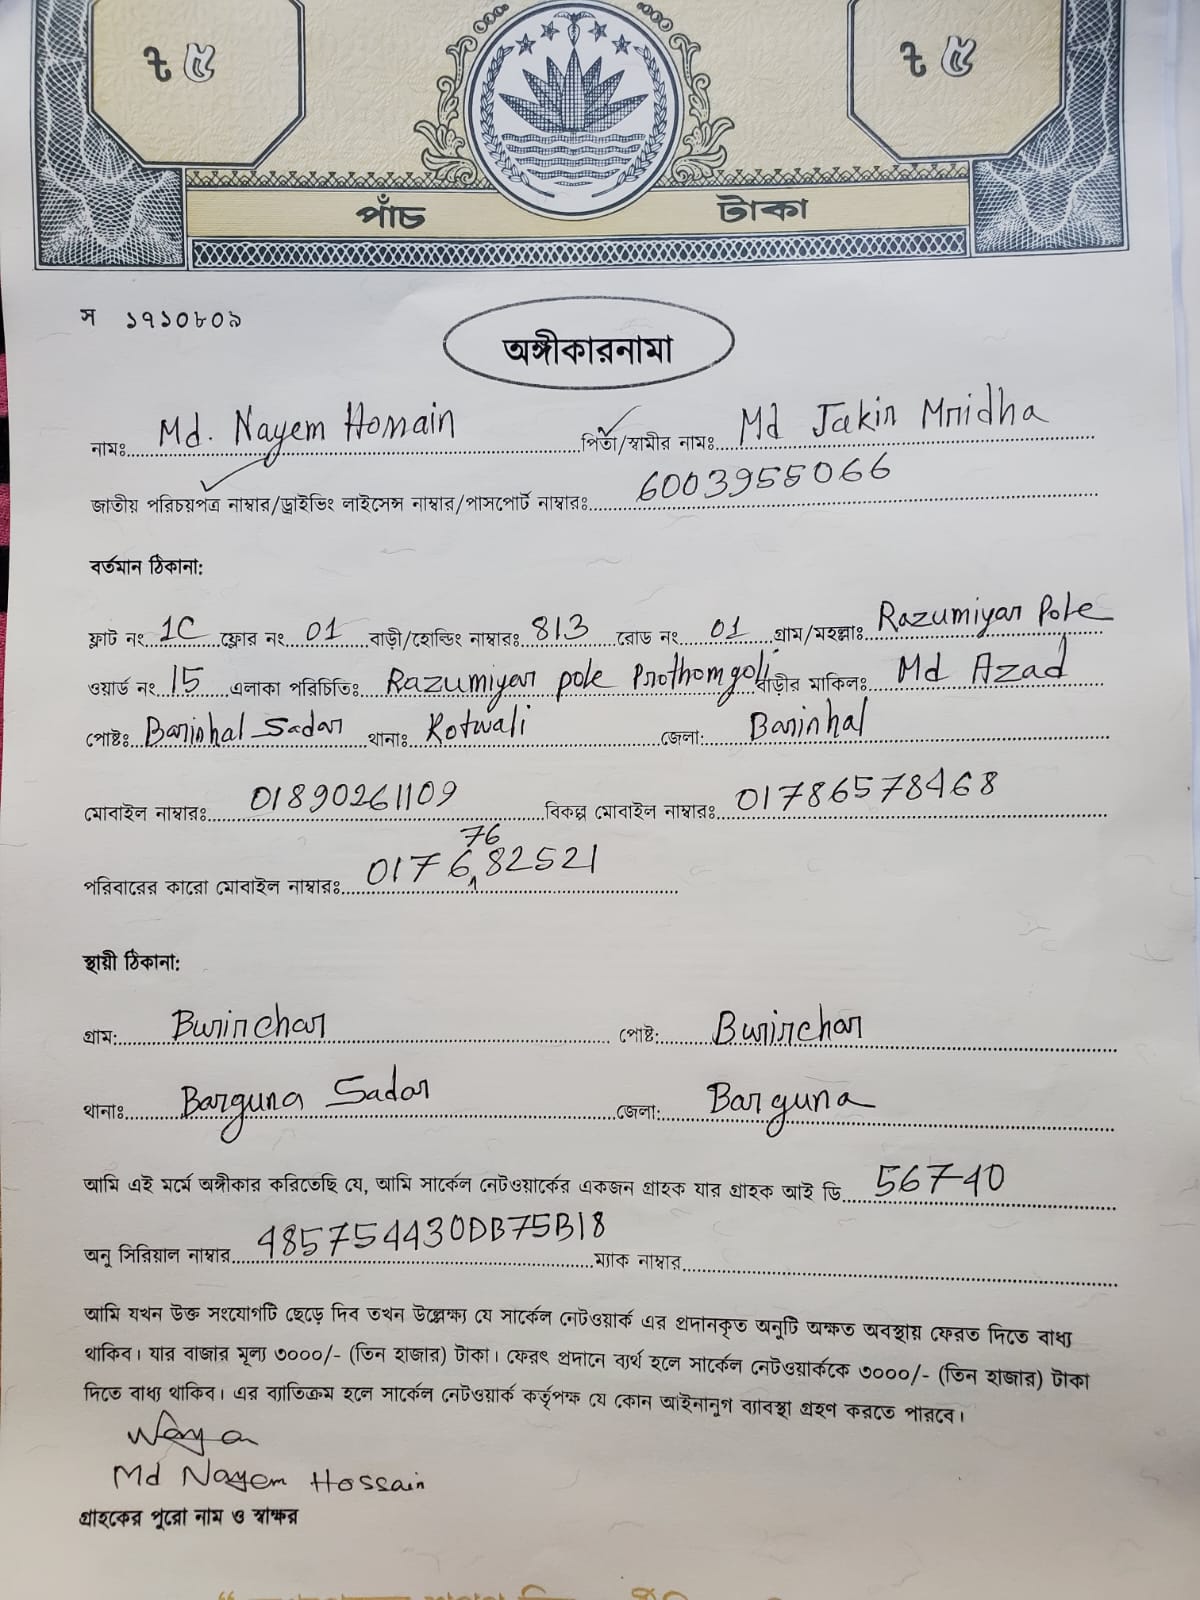 ৳ ৫
৳ ৫
পাঁচ টাকা
স ১৭১০৮০৯
অঙ্গীকারনামা
নামঃ Md. Nayem Hossain পিতা/স্বামীর নামঃ Md Jakir Mridha
জাতীয় পরিচয়পত্র নাম্বার/ড্রাইভিং লাইসেন্স নাম্বার/পাসপোর্ট নাম্বারঃ 6003955066
বর্তমান ঠিকানা:
ফ্লাট নং 1C ফ্লোর নং 01 বাড়ী/হোল্ডিং নাম্বারঃ 813 রোড নং 01 গ্রাম/মহল্লাঃ Razumiyar Pole
ওয়ার্ড নং 15 এলাকা পরিচিতিঃ Razumiyar pole Prothomgoli বাড়ীর মাকিলঃ Md Azad
পোষ্টঃ Barishal Sadar থানাঃ Kotwali জেলা: Barishal
মোবাইল নাম্বারঃ 01890261109 বিকল্প মোবাইল নাম্বারঃ 01786578468
76
পরিবারের কারো মোবাইল নাম্বারঃ 0176 82521
স্থায়ী ঠিকানা:
গ্রাম: Burirchar পোষ্ট: Burirchar
থানাঃ Barguna Sadar জেলা: Barguna
আমি এই মর্মে অঙ্গীকার করিতেছি যে, আমি সার্কেল নেটওয়ার্কের একজন গ্রাহক যার গ্রাহক আই ডি 56740
অনু সিরিয়াল নাম্বার 485754430DB75B18 ম্যাক নাম্বার
আমি যখন উক্ত সংযোগটি ছেড়ে দিব তখন উল্লেক্ষ্য যে সার্কেল নেটওয়ার্ক এর প্রদানকৃত অনুটি অক্ষত অবস্থায় ফেরত দিতে বাধ্য
থাকিব। যার বাজার মূল্য ৩০০০/- (তিন হাজার) টাকা। ফেরৎ প্রদানে ব্যর্থ হলে সার্কেল নেটওয়ার্ককে ৩০০০/- (তিন হাজার) টাকা
দিতে বাধ্য থাকিব। এর ব্যাতিক্রম হলে সার্কেল নেটওয়ার্ক কর্তৃপক্ষ যে কোন আইনানুগ ব্যাবস্থা গ্রহণ করতে পারবে।
Md Nayem Hossain
গ্রাহকের পুরো নাম ও স্বাক্ষর